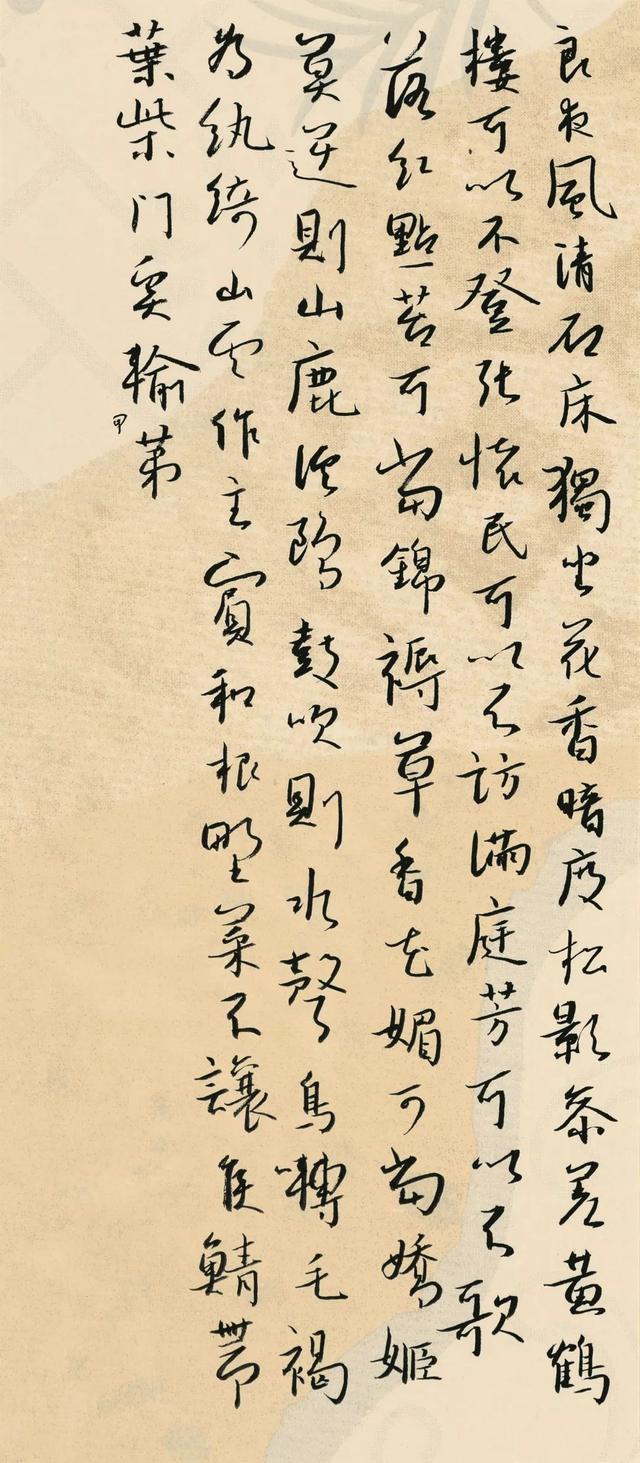 良夜風清石床獨坐花香暗度松影參差黃鶴
樓可以不登張懷民可以不訪滿庭芳可以不歌
落紅點苔可當錦褥草香花媚可當嬌姬
莫逆則山鹿溪鷗鼓吹則水聲鳥囀毛褐
為紈綺山雲作主賓和根野菜不讓侯鯖帶
葉柴門奚輸甲第